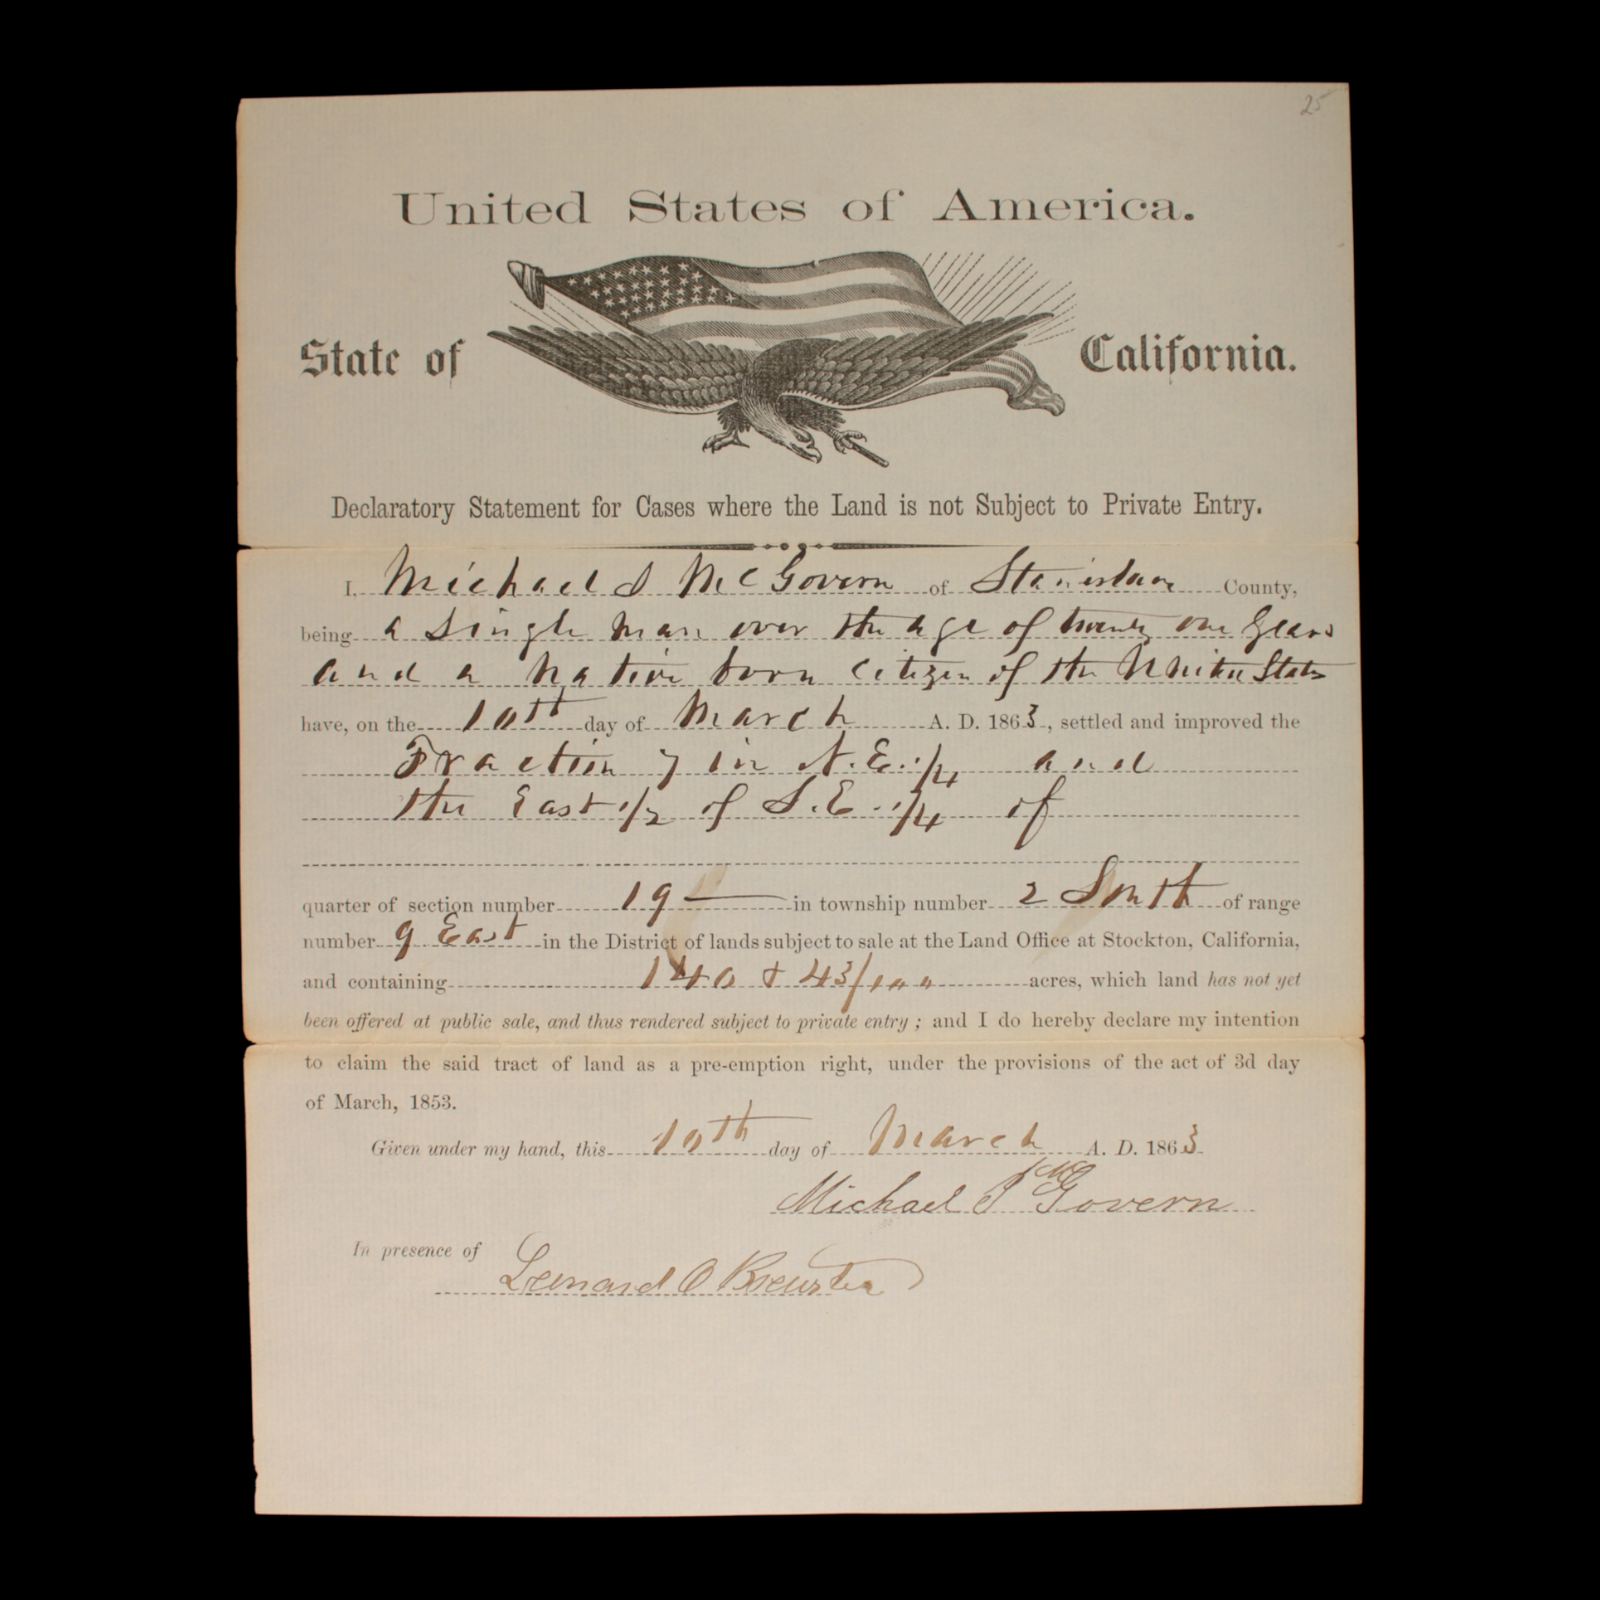 25
United States of America.
State of California.
Declaratory Statement for Cases where the Land is not Subject to Private Entry.
I, Michael J McGovern of Stanislaus County,
being a single man over the age of twenty one years
and a native born citizen of the United States
have, on the 10th day of March A. D. 1863, settled and improved the
Fraction 7 in N.E. 1/4 and
the East 1/2 of S.E. 1/4 of
quarter of section number 19 — in township number 2 South of range
number 9 East in the District of lands subject to sale at the Land Office at Stockton, California,
and containing 140 & 43/100 acres, which land has not yet
been offered at public sale, and thus rendered subject to private entry; and I do hereby declare my intention
to claim the said tract of land as a pre-emption right, under the provisions of the act of 3d day
of March, 1853.
Given under my hand, this 10th day of March A. D. 1863.
Michael J McGovern
In presence of
Leonard O Brewster